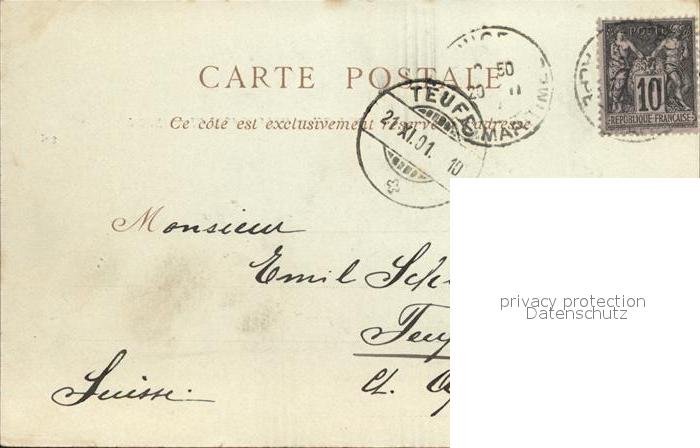 CARTE POSTALE
Ce côté est exclusivement réservé à l'adresse
NICE
50
20
MARITIMES
TEUFEN
21.XI.01. 10
POSTE
10
REPUBLIQUE FRANÇAISE
Monsieur
Emil Sch
Teuf
Ct. Ap
Suisse.
privacy protection
Datenschutz